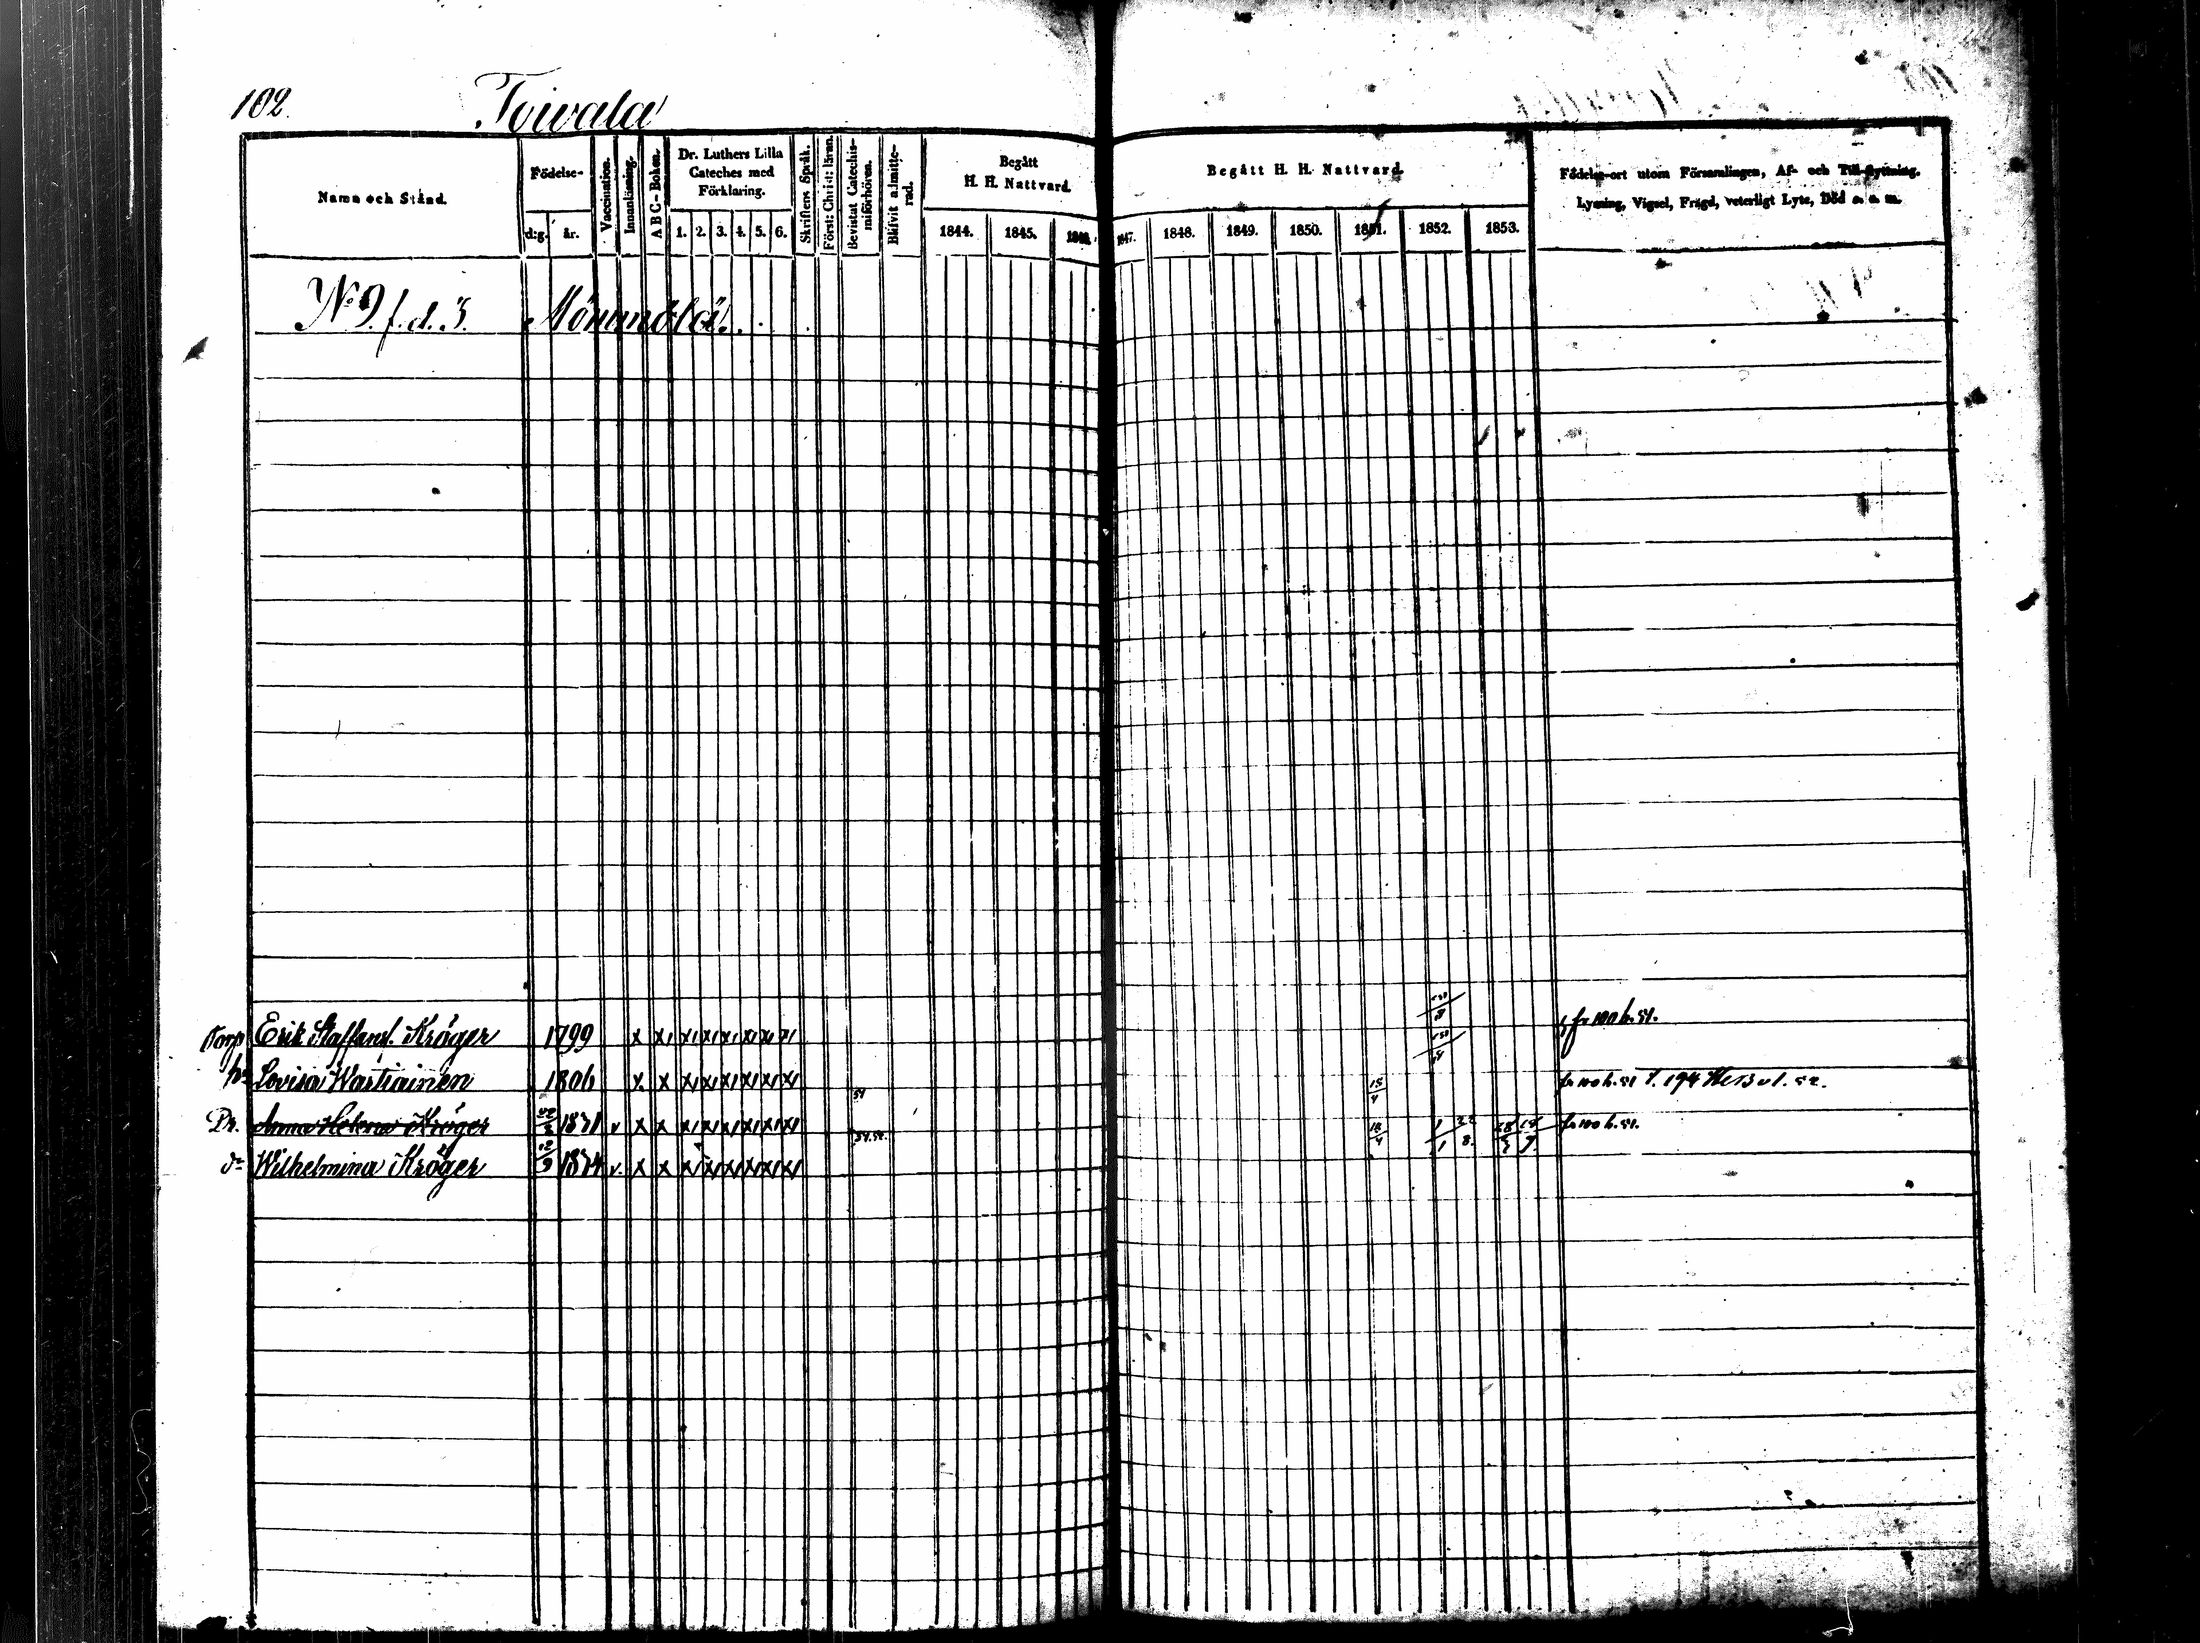 102. Toivala
Namn och Stånd.
Födelse-
d:g. år.
Vaccination.
Innanläsning.
A B C-Boken.
Dr. Luthers Lilla
Cateches med
Förklaring.
1. 2. 3. 4. 5. 6.
Skriftens Språk.
Först: Christ: läran.
Bevistat Catechis-
miförhören.
Blifvit admitte-
rad.
Begått
H. H. Nattvard.
1844. 1845. 1846.
Begått H. H. Nattvard.
1847. 1848. 1849. 1850. 1851. 1852. 1853.
Födelse-ort utom Församlingen, Af- och Till-flyttning,
Lysning, Vigsel, Frägd, veterligt Lyte, Död o. s. m.
No 9. f. d. 3. Mömmölä.
Torp Erik Staffansf. Kröger 1799 x x x x x x x x fr 100 h. 51.
hu Lovisa Wastiainen 1806 x x x x x x x x 51 18/4 fr 100 h. 51
Dr. Anna Helena Kröger 1831 v x x x x x x x x 51.52. 18/4 fr 100 h. 51.
dr Wilhelmina Kröger 12/9 1834 v. x x x x x x x x